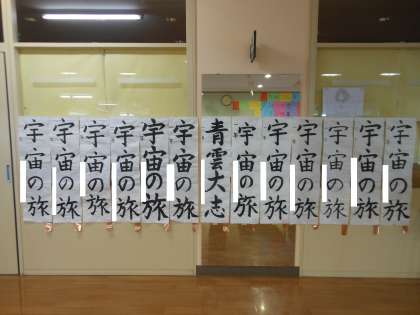 宇宙の旅
宇宙の旅
宇宙の旅
宇宙の旅
宇宙の旅
宇宙の旅
青雲大志
宇宙の旅
宇宙の旅
宇宙の旅
宇宙の旅
宇宙の旅
宇宙の旅